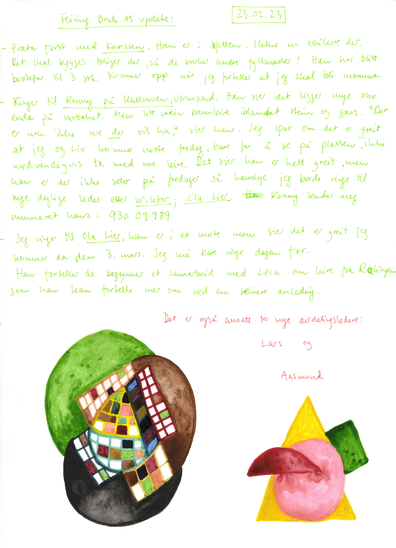 Feiring Bruk AS update:
23.02.23
- Prata først med Karsten. Han er i fjellen. Ikke no blåleire der.
Det skal bygges boliger der, så de bruker andre fyllmasser! Han har blitt
bestefar til 3 stk. Kommer opp når jeg forteller at jeg skal bli mamma.
- Ringer til Ronny på Hullmoen, Vormsund. Han sier det ligger mye snø
enda på mottaket. Men litt leire blandet stein og grus. "Det
er nok ikke noe du vil ha," sier han. Jeg spør om det er greit
at jeg og Siv kommer neste fredag, bare for å se på plassen, ikke
nødvendigvis ta med noe leire. Det sier han er helt greit, men
han er der ikke selv på fredager så kanskje jeg burde ringe til
nye daglige leder etter Wiktor; Ola Lier. Ronny sender meg
nummeret hans: 930 09989
- Jeg ringer til Ola Lier, han er i et møte men sier det er greit jeg
kommer da den 3. mars. Jeg må bare ringe dagen før.
Han forteller de begynner et samarbeid med Leca om leire fra Rælingen
som han kan fortelle mer om ved en senere anledning.
Det er også ansatt to nye avdelingsledere:
Lars og
Aasmund